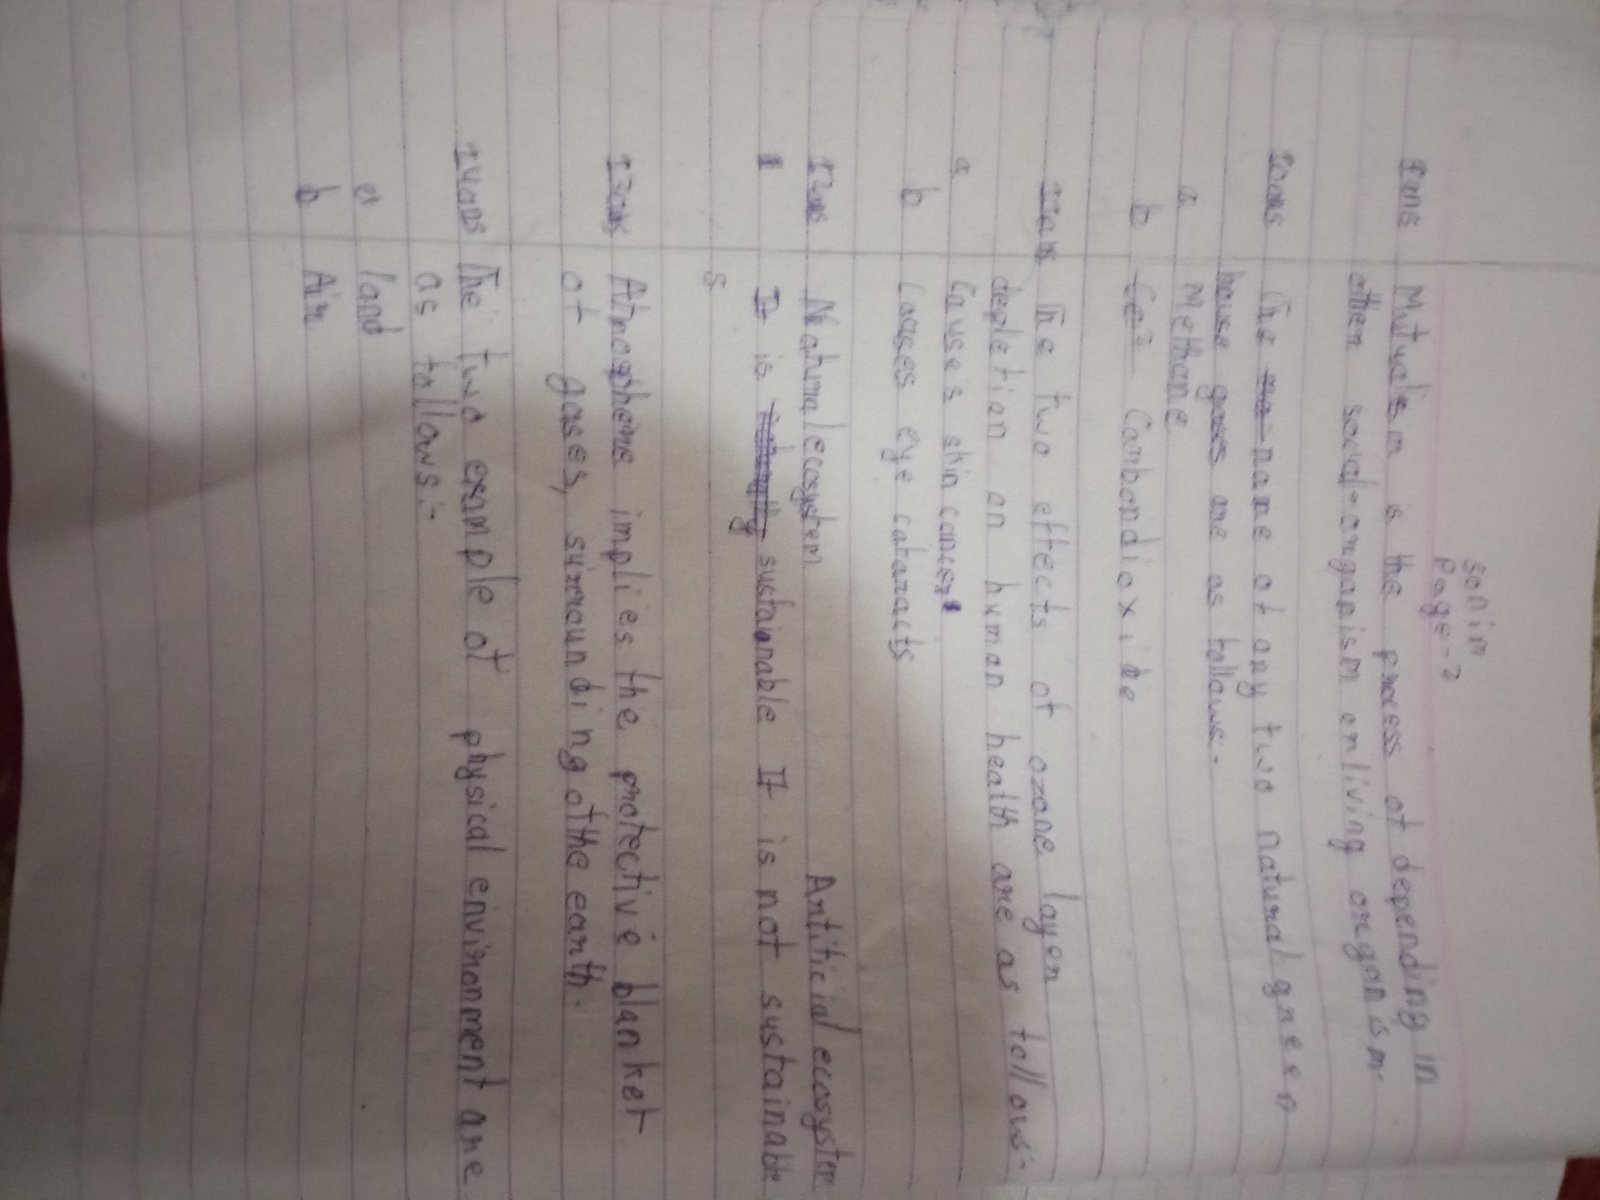 sonin
Page-2
9ans Mutualism is the process of depending in
other social-organism on living organism
10ans The name of any two natural green
house gases are as follows:-
a Methane
b Carbondioxide
11ans The two effects of ozone layer
depletion on human health are as follows:-
a Causes skin cancer
b Causes eye cataracts
12ans Natural ecosystem Artificial ecosystem
1 It is sustainable It is not sustainable
s
13ans Atmosphere implies the protective blanket
of gases, surrounding of the earth.
14ans The two example of physical environment are
as follows:-
a land
b Air